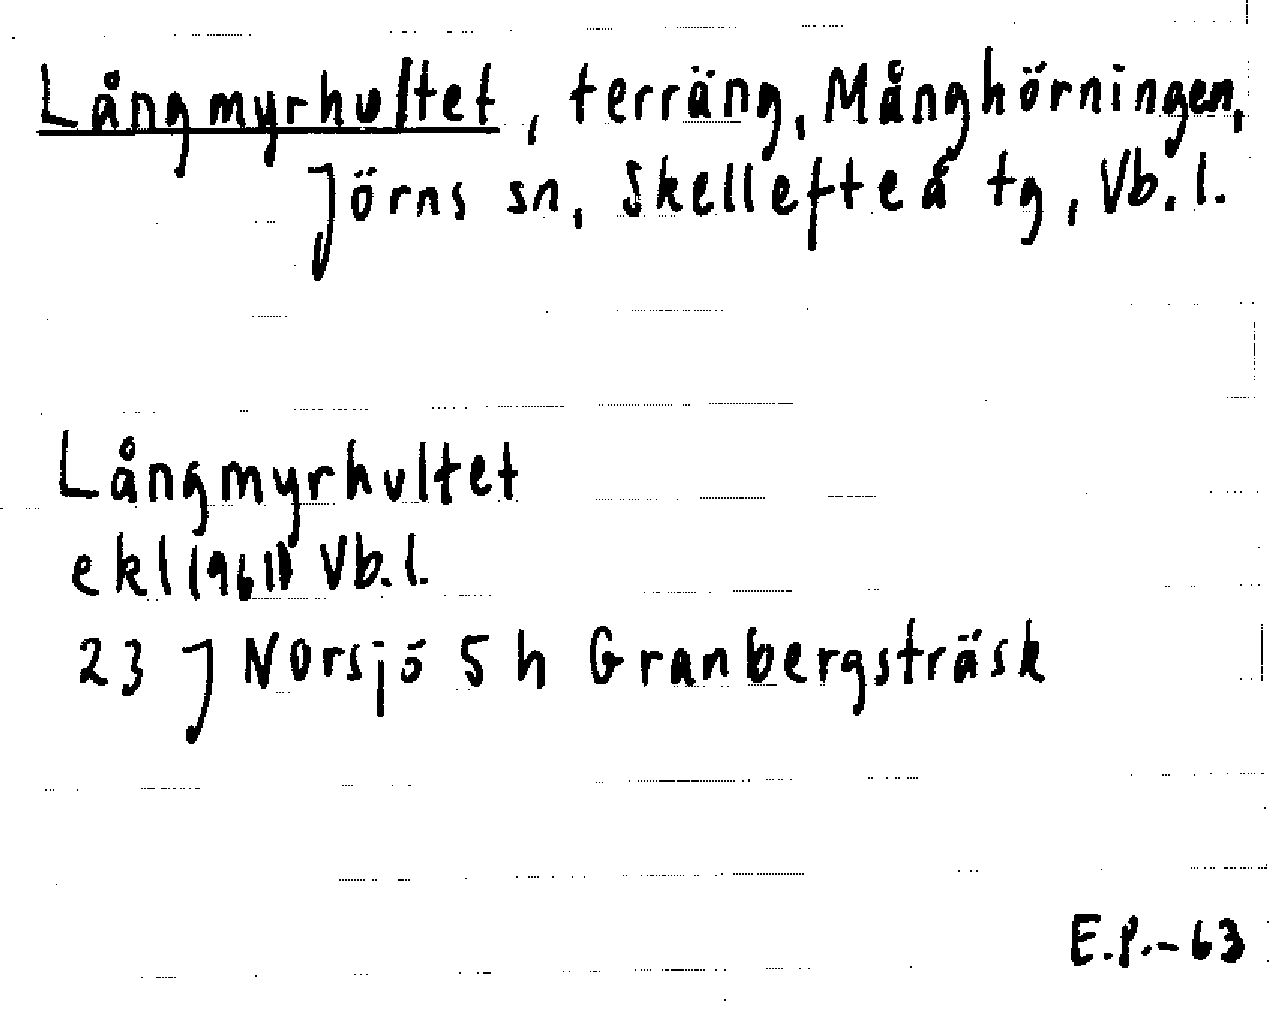 Långmyrhultet, terräng, Månghörningen,
Jörns sn, Skellefteå tg, Vb. l.
Långmyrhultet
ekl (1961) Vb. l.
23 J Norsjö 5 h Granbergsträsk
E.P.-63